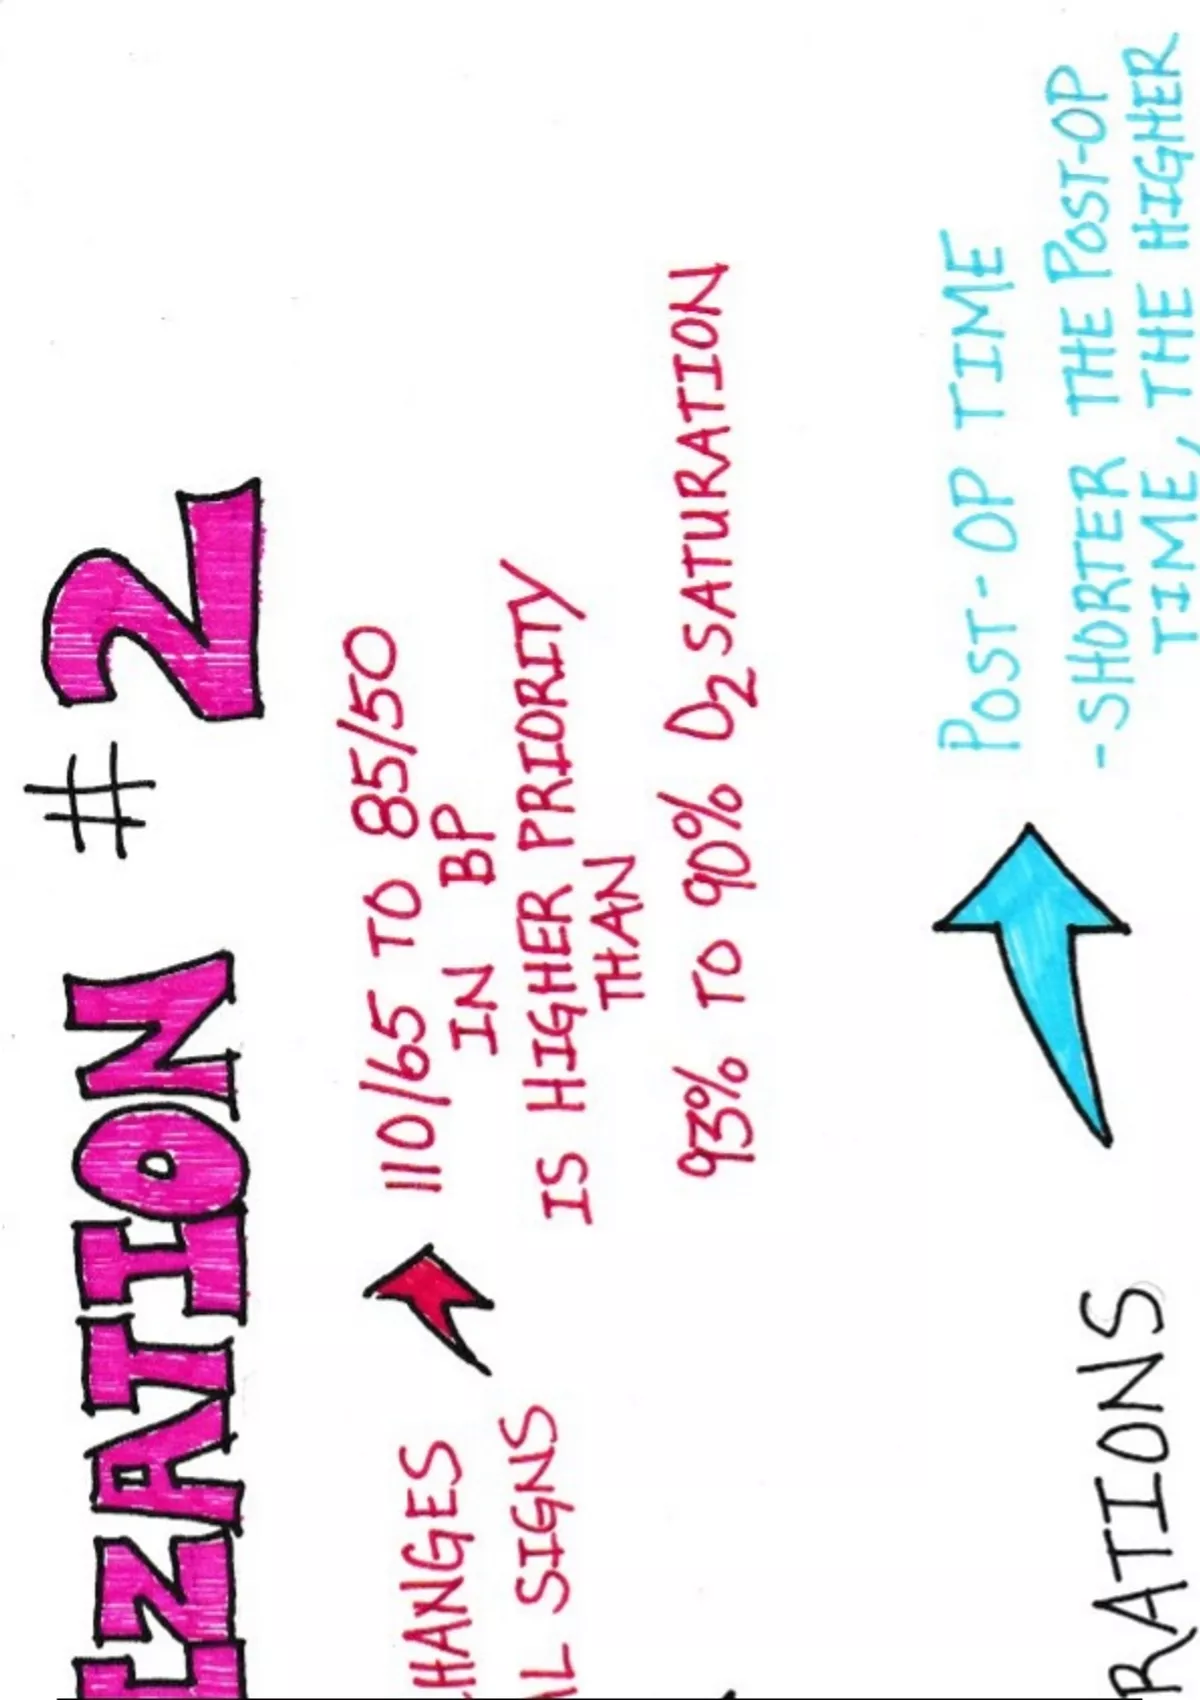 IZATION #2
HANGES
L SIGNS
110/65 TO 85/50
IN BP
IS HIGHER PRIORITY
THAN
93% TO 90% O2 SATURATION
RATIONS
POST-OP TIME
-SHORTER THE POST-OP
TIME, THE HIGHER